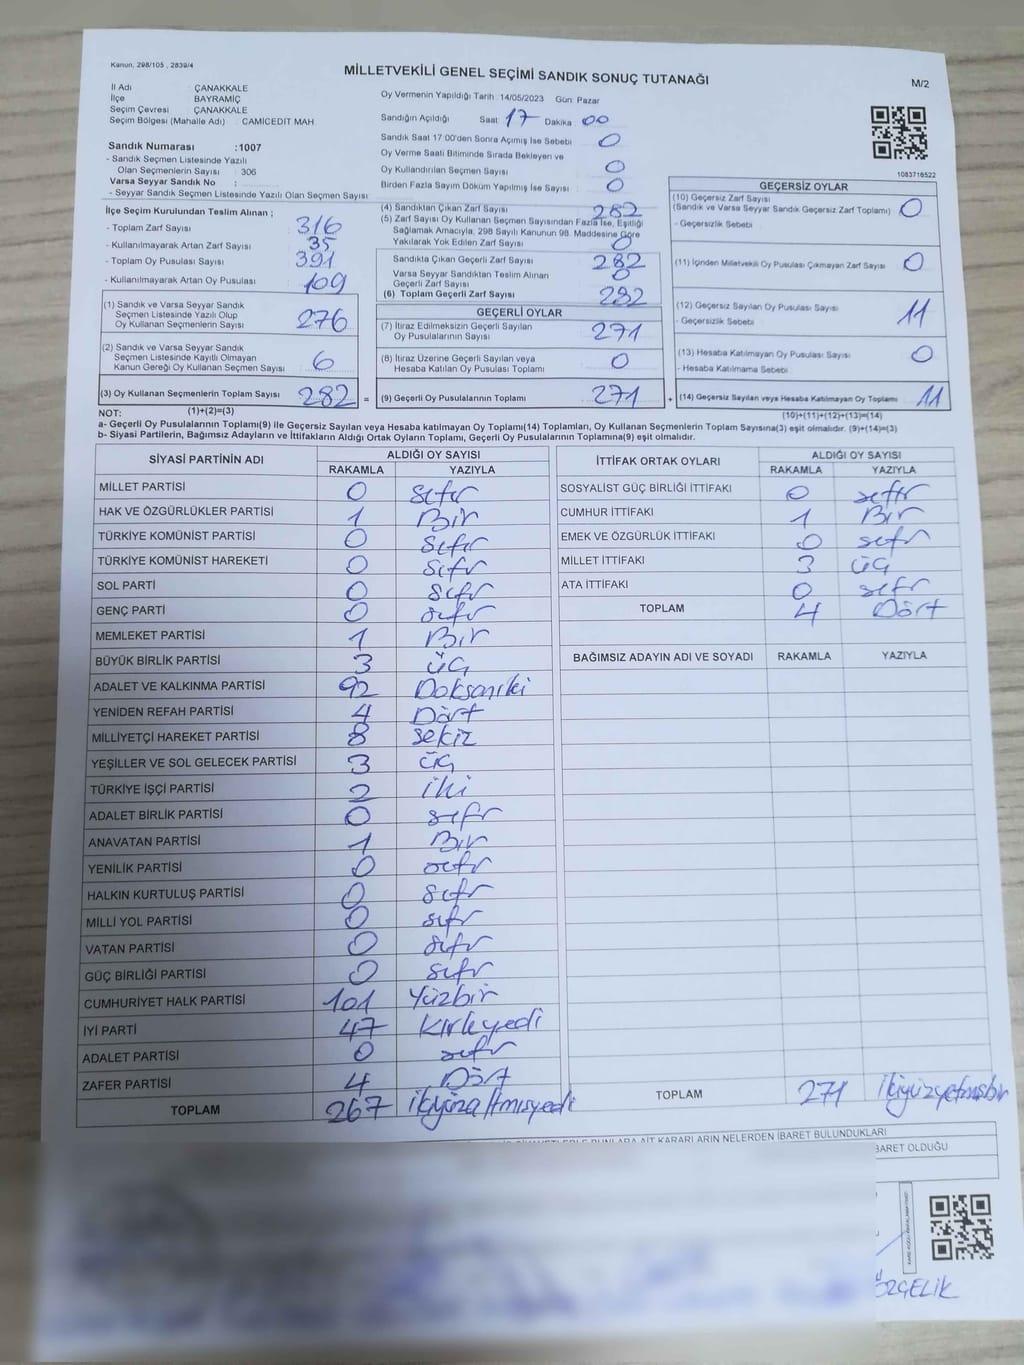 Kanun, 298/105 , 2839/4
MİLLETVEKİLİ GENEL SEÇİMİ SANDIK SONUÇ TUTANAĞI
M/2
İl Adı : ÇANAKKALE
İlçe : BAYRAMİÇ
Seçim Çevresi : ÇANAKKALE
Seçim Bölgesi (Mahalle Adı) : CAMİCEDİT MAH.
Oy Vermenin Yapıldığı Tarih : 14/05/2023 Gün: Pazar
Sandığın Açıldığı Saat 17 Dakika 00
Sandık Saat 17:00'den Sonra Açılmış İse Sebebi 0
Oy Verme Saati Bitiminde Sırada Bekleyen ve
Oy Kullandırılan Seçmen Sayısı 0
Birden Fazla Sayım Döküm Yapılmış İse Sayısı : 0
1083716522
Sandık Numarası :1007
- Sandık Seçmen Listesinde Yazılı
Olan Seçmenlerin Sayısı : 306
Varsa Seyyar Sandık No :
- Seyyar Sandık Seçmen Listesinde Yazılı Olan Seçmen Sayısı :
İlçe Seçim Kurulundan Teslim Alınan ;
- Toplam Zarf Sayısı : 316
- Kullanılmayarak Artan Zarf Sayısı : 35
- Toplam Oy Pusulası Sayısı : 391
- Kullanılmayarak Artan Oy Pusulası : 109
(1) Sandık ve Varsa Seyyar Sandık
Seçmen Listesinde Yazılı Olup
Oy Kullanan Seçmenlerin Sayısı 276
(2) Sandık ve Varsa Seyyar Sandık
Seçmen Listesinde Kayıtlı Olmayan
Kanun Gereği Oy Kullanan Seçmen Sayısı 6
(3) Oy Kullanan Seçmenlerin Toplam Sayısı 282 =
(1)+(2)=(3)
(4) Sandıktan Çıkan Zarf Sayısı 282
(5) Zarf Sayısı Oy Kullanan Seçmen Sayısından Fazla İse, Eşitliği
Sağlamak Amacıyla, 298 Sayılı Kanunun 98. Maddesine Göre
Yakılarak Yok Edilen Zarf Sayısı 0
Sandıkta Çıkan Geçerli Zarf Sayısı 282
Varsa Seyyar Sandıktan Teslim Alınan
Geçerli Zarf Sayısı 0
(6) Toplam Geçerli Zarf Sayısı 282
GEÇERLİ OYLAR
(7) İtiraz Edilmeksizin Geçerli Sayılan
Oy Pusulalarının Sayısı 271
(8) İtiraz Üzerine Geçerli Sayılan veya
Hesaba Katılan Oy Pusulası Toplamı 0
(9) Geçerli Oy Pusulalarının Toplamı 271 +
GEÇERSİZ OYLAR
(10) Geçersiz Zarf Sayısı
(Sandık ve Varsa Seyyar Sandık Geçersiz Zarf Toplamı) 0
- Geçersizlik Sebebi :
(11) İçinden Milletvekili Oy Pusulası Çıkmayan Zarf Sayısı 0
(12) Geçersiz Sayılan Oy Pusulası Sayısı 11
- Geçersizlik Sebebi :
(13) Hesaba Katılmayan Oy Pusulası Sayısı 0
- Hesaba Katılmama Sebebi :
(14) Geçersiz Sayılan veya Hesaba Katılmayan Oy Toplamı 11
(10)+(11)+(12)+(13)=(14)
NOT:
a- Geçerli Oy Pusulalarının Toplamı(9) ile Geçersiz Sayılan veya Hesaba katılmayan Oy Toplamı(14) Toplamları, Oy Kullanan Seçmenlerin Toplam Sayısına(3) eşit olmalıdır. (9)+(14)=(3)
b- Siyasi Partilerin, Bağımsız Adayların ve İttifakların Aldığı Ortak Oyların Toplamı, Geçerli Oy Pusulalarının Toplamına(9) eşit olmalıdır.
SİYASİ PARTİNİN ADI ALDIĞI OY SAYISI
RAKAMLA YAZIYLA
MİLLET PARTİSİ 0 sıfır
HAK VE ÖZGÜRLÜKLER PARTİSİ 1 Bir
TÜRKİYE KOMÜNİST PARTİSİ 0 sıfır
TÜRKİYE KOMÜNİST HAREKETİ 0 sıfr
SOL PARTİ 0 sıfr
GENÇ PARTİ 0 sıfr
MEMLEKET PARTİSİ 1 Bir
BÜYÜK BİRLİK PARTİSİ 3 üç
ADALET VE KALKINMA PARTİSİ 92 Doksaniki
YENİDEN REFAH PARTİSİ 4 Dört
MİLLİYETÇİ HAREKET PARTİSİ 8 sekiz
YEŞİLLER VE SOL GELECEK PARTİSİ 3 üç
TÜRKİYE İŞÇİ PARTİSİ 2 iki
ADALET BİRLİK PARTİSİ 0 sıfr
ANAVATAN PARTİSİ 1 Bir
YENİLİK PARTİSİ 0 sıfr
HALKIN KURTULUŞ PARTİSİ 0 sıfr
MİLLİ YOL PARTİSİ 0 sıfr
VATAN PARTİSİ 0 sıfr
GÜÇ BİRLİĞİ PARTİSİ 0 sıfr
CUMHURİYET HALK PARTİSİ 101 Yüzbir
İYİ PARTİ 47 Kırkyedi
ADALET PARTİSİ 0 sıfr
ZAFER PARTİSİ 4 Dört
TOPLAM 267 ikiyüzaltmışyedi
İTTİFAK ORTAK OYLARI ALDIĞI OY SAYISI
RAKAMLA YAZIYLA
SOSYALİST GÜÇ BİRLİĞİ İTTİFAKI 0 sıfır
CUMHUR İTTİFAKI 1 Bir
EMEK VE ÖZGÜRLÜK İTTİFAKI 0 sıfr
MİLLET İTTİFAKI 3 üç
ATA İTTİFAKI 0 sıfr
TOPLAM 4 Dört
BAĞIMSIZ ADAYIN ADI VE SOYADI RAKAMLA YAZIYLA
TOPLAM 271 ikiyüzyetmişbir
KARARLARIN NELERDEN İBARET BULUNDUKLARI
BARET OLDUĞU
ÖZÇELİK